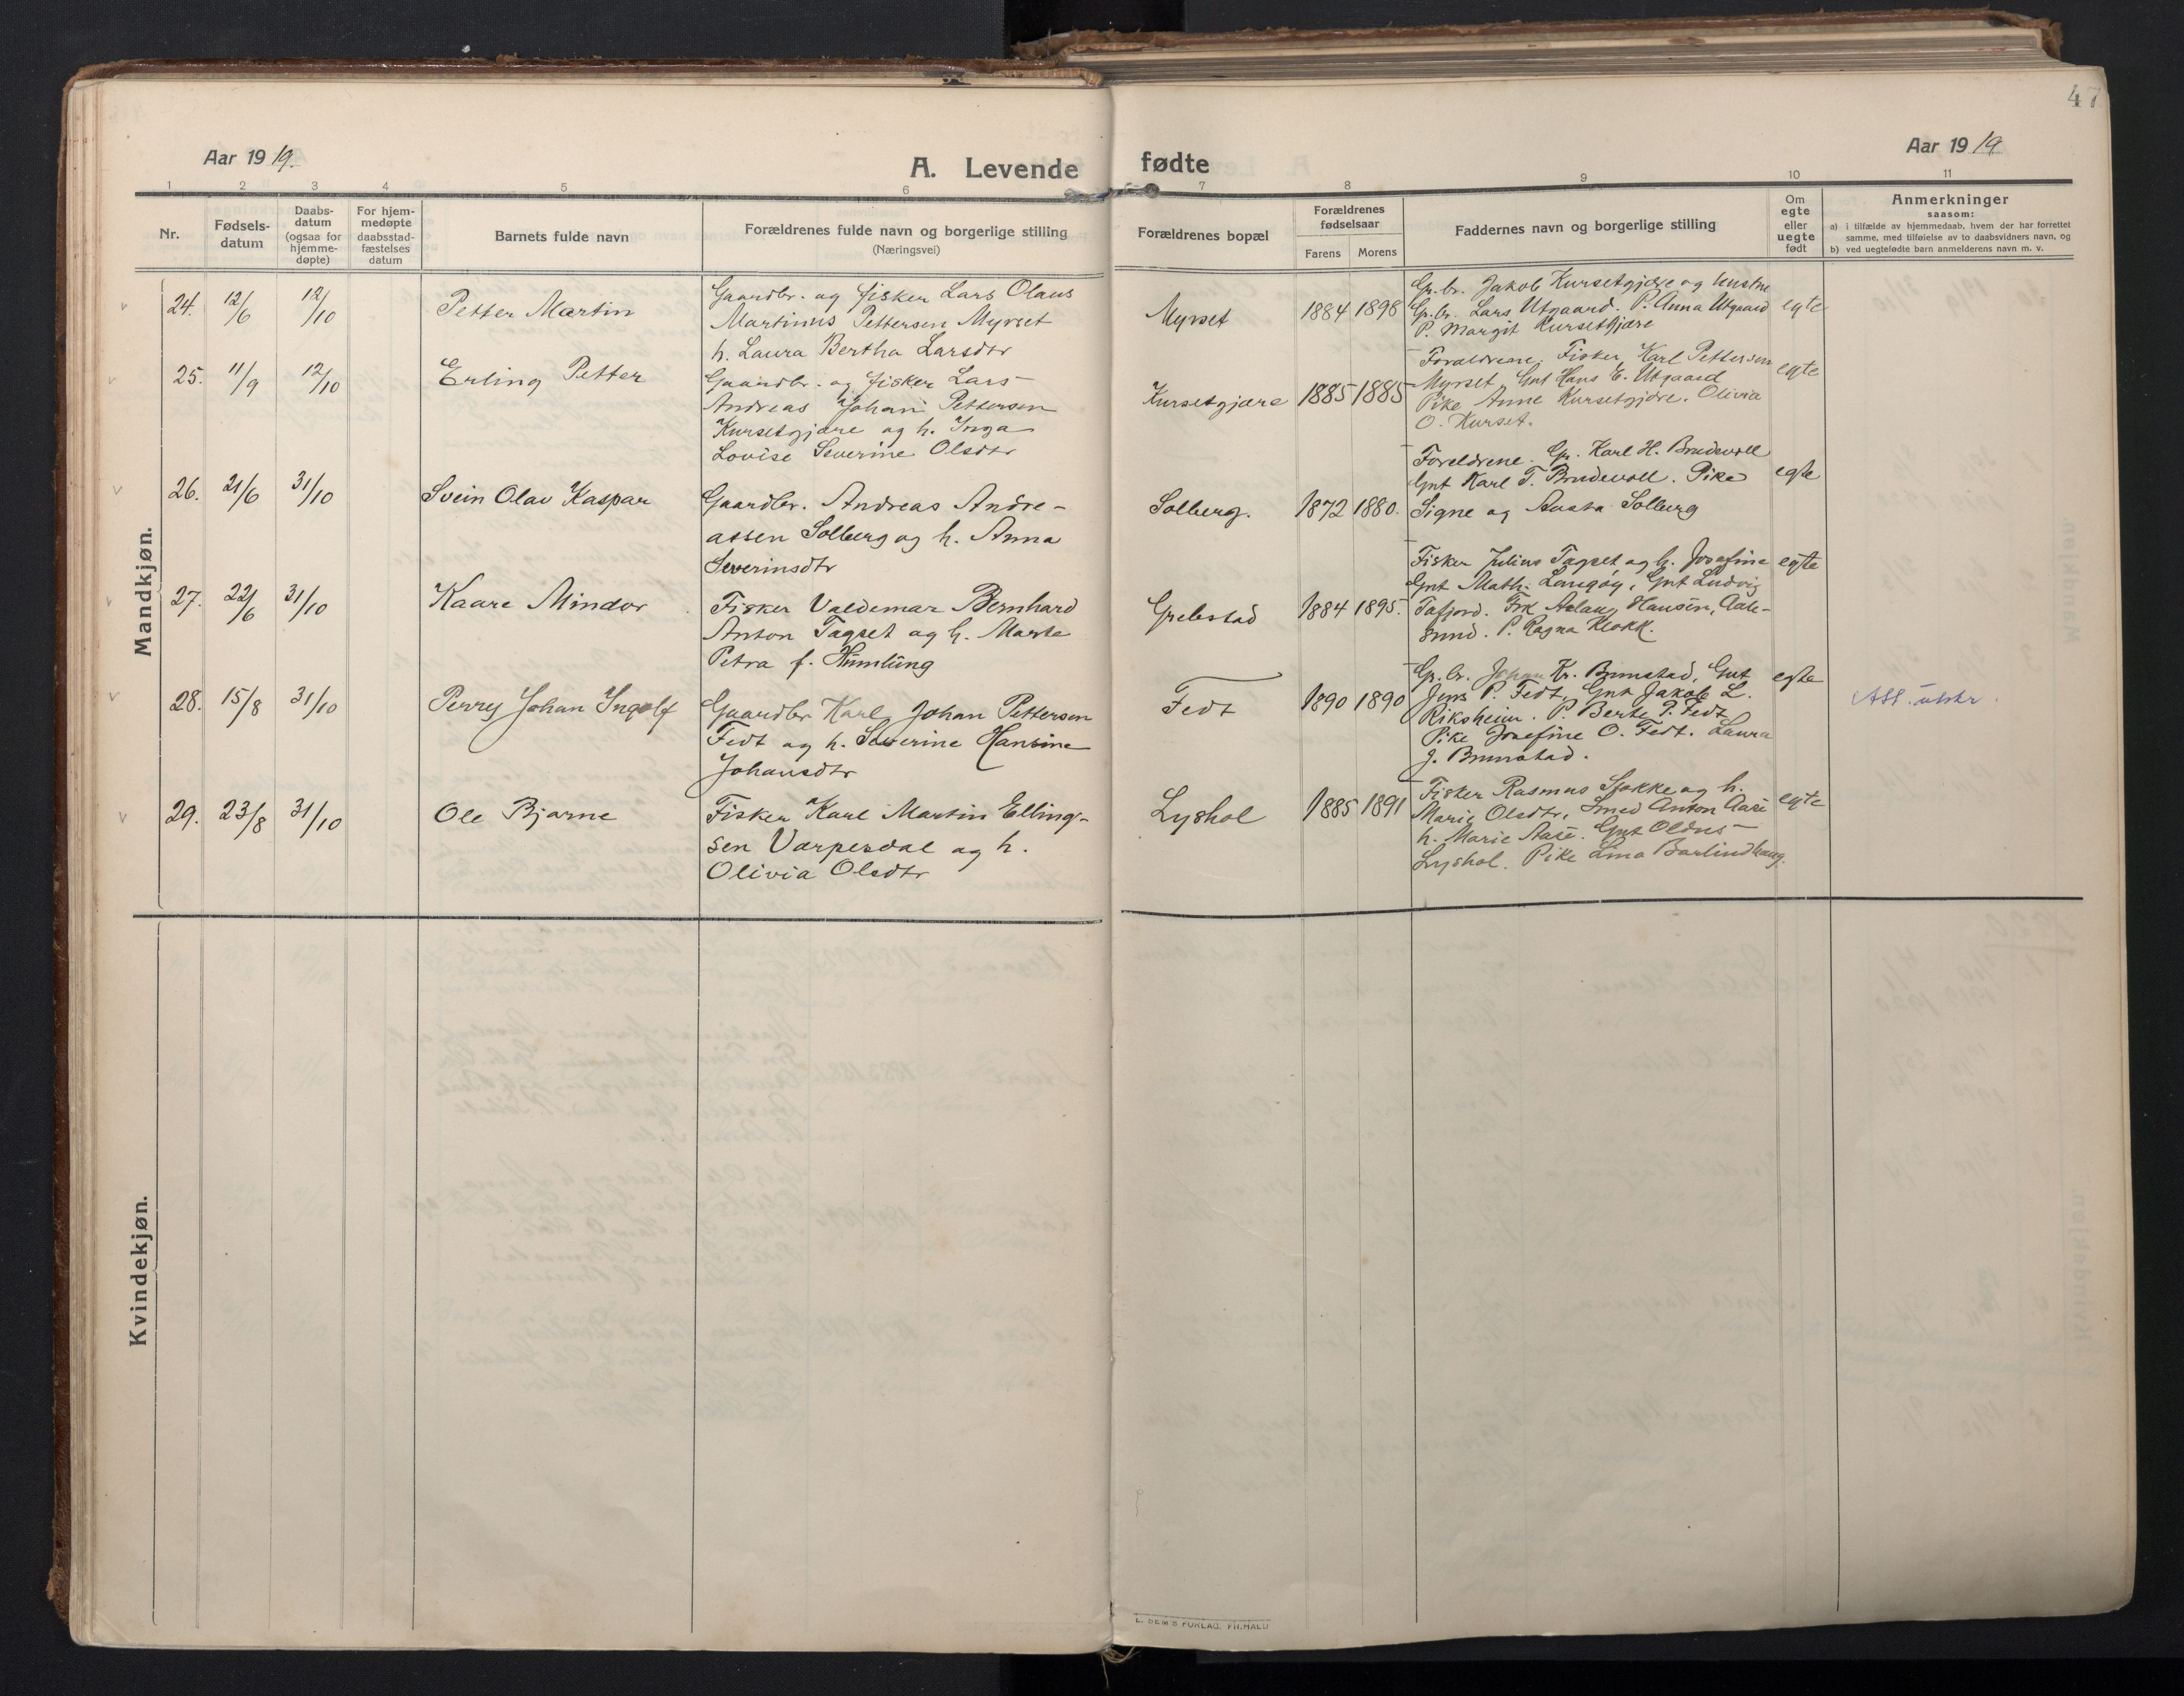 47
Aar 1919.
A. Levende fødte
Aar 1919
1 2 3 4 5 6 7 8 9 10 11
Nr.
Fødsels-
datum
Daabs-
datum
(ogsaa for
hjemme-
døpte)
For hjem-
medøpte
daabsstad-
fæstelses
datum
Barnets fulde navn
Forældrenes fulde navn og borgerlige stilling
(Næringsvei)
Forældrenes bopæl
Forældrenes
fødselsaar
Farens Morens
Faddernes navn og borgerlige stilling
Om
egte
eller
uegte
født
Anmerkninger
saasom:
a) i tilfælde av hjemmedaab, hvem der har forrettet
samme, med tilføielse av to daabsvidners navn, og
b) ved uegtefødte barn anmelderens navn m. v.
Mandkjøn.
24. 12/6 12/10 Petter Martin
Gaardbr. og fisker Lars Olaus
Martinus Pettersen Myrset
h. Laura Bertha Larsdtr
Myrset 1884 1898
Gr.br. Jakob Kursetgjære og hustru
Gr.br. Lars Utgaard. P. Anna Utgaard
P. Margit Kursetgjære
egte
25. 11/9 12/10 Erling Petter
Gaardbr. og fisker Lars
Andreas Johan Pettersen
Kursetgjære og h. Inga
Lovise Severine Olsdtr
Kursetgjære 1885 1885
Forældrene. Fisker Karl Pettersen
Myrset, Gut Hans E. Utgaard
Pike Anne Kursetgjære. Olivia
O. Kurset.
egte
26. 21/6 31/10 Svein Olav Kaspar
Gaardbr. Andreas Andre-
assen Solberg og h. Anna
Severinsdtr
Solberg. 1872 1880.
Foreldrene. Gr. Karl H. Brudevoll
Gut Karl T. Brudevoll. Pike
Signe og Aasta Solberg
egte
27. 22/6 31/10 Kaare Mindor
Fisker Valdemar Bernhard
Anton Tagset og h. Marte
Petra f. Humlung
Grebstad 1884 1895.
Fisker Julius Tagset og h. Josefine
Gut Math. Langøy, Gut Ludvig
Tafjord. Frk Aslaug Hansen, Aale-
sund. P. Ragna Klokk.
egte
28. 15/8 31/10 Perry Johan Ingolf
Gaardbr Karl Johan Pettersen
Fedt og h. Severine Hansine
Johansdtr
Fedt 1890 1890
Gr.br. Johan Kr. Brunstad, Gut
Jens P. Fedt, Gut Jakob L.
Riksheim. P. Berte P. Fedt
Pike Josefine O. Fedt. Laura
J. Brunstad.
egte
Att. utskr.
29. 23/8 31/10 Ole Bjarne
Fisker Karl Martin Elling-
sen Varpesdal og h.
Olivia Olsdtr
Lyshol 1885 1891
Fisker Rasmus Stokke og h.
Marie Olsdtr, Smed Anton Aase
h. Marie Aase. Gut
Lyshol. Pike Lina Barlindhaug.
egte
Kvindekjøn.
E. SEM'S FORLAG. FR.HALD